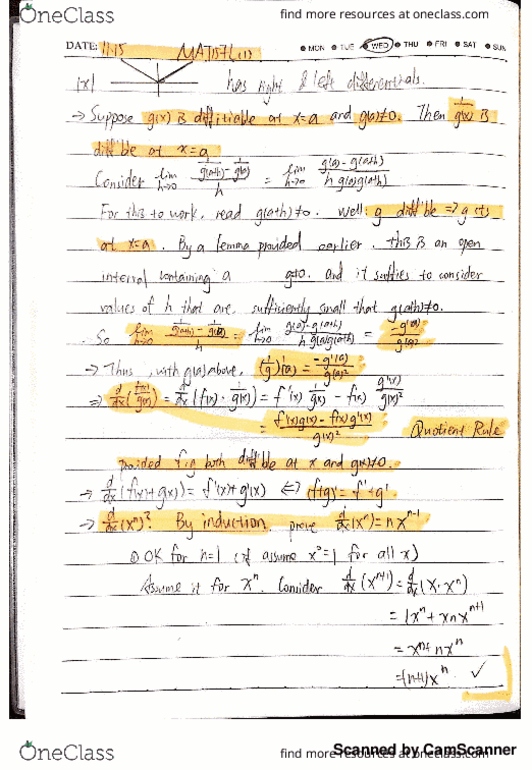 OneClass
find more resources at oneclass.com
DATE: 11.15 MAT157 L13 MON TUE WED THU FRI SAT SUN
|x| has right & left differentials.
→ Suppose g(x) is diff'tiable at x=a and g(a)≠0. Then 1/g(x) is
diff'ble at x=a
Consider lim h→0 (1/g(a+h) - 1/g(a))/h = lim h→0 (g(a)-g(a+h))/(h g(a)g(a+h))
For this to work, read g(a+h)≠0. Well: g diff'ble => g cts
at x=a. By a lemma provided earlier, this is an open
interval containing a g≠0. and it suffies to consider
values of h that are, sufficiently small that g(a+h)≠0.
So lim h→0 (1/g(a+h) - 1/g(a))/h = lim h→0 (g(a)-g(a+h))/(h g(a)g(a+h)) = -g'(a)/g(a)²
→ Thus, with g(a) above, (1/g)'(a) = -g'(a)/g(a)²
⇒ d/dx(f(x)/g(x)) = d/dx(f(x)·1/g(x)) = f'(x) 1/g(x) - f(x) g'(x)/g(x)²
= (f'(x)g(x) - f(x)g'(x))/g(x)² Quotient Rule
provided f, g both diff'ble at x and g(x)≠0.
→ d/dx(f(x)+g(x)) = f'(x)+g'(x) ⇔ (f+g)' = f'+g'
→ d/dx(xⁿ)? By induction, prove d/dx(xⁿ) = n xⁿ⁻¹
① OK for n=1 (if assume x⁰=1 for all x)
Assume it for xⁿ. Consider d/dx(xⁿ⁺¹) = d/dx(x·xⁿ)
= 1xⁿ + x n xⁿ⁺¹
= xⁿ + n xⁿ
= (n+1)xⁿ. ✓
OneClass
find more resources at oneclass.com
Scanned by CamScanner